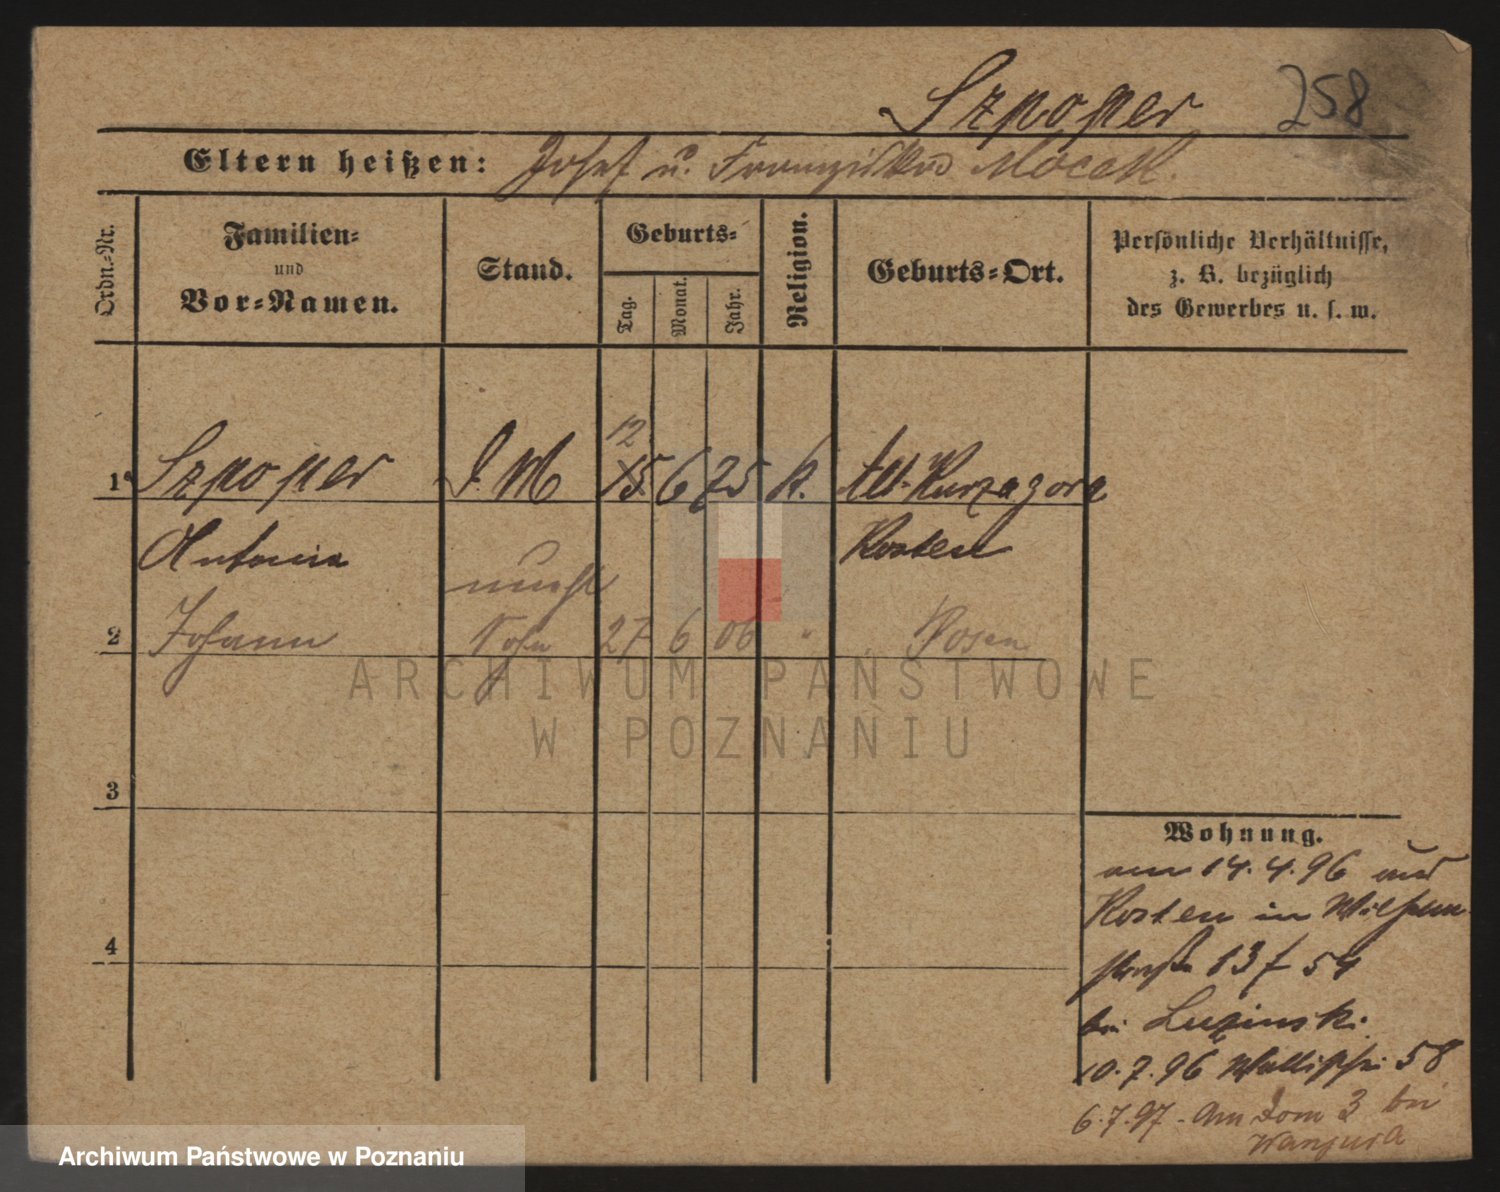 Szpoper 258
Eltern heißen: Josef u. Franziska Mocek.
Ordn.-Nr.
Familien-
und
Vor-Namen.
Stand.
Geburts-
Tag.
Monat.
Jahr.
Religion.
Geburts-Ort.
Persönliche Verhältnisse,
z. B. bezüglich
des Gewerbes u. s. w.
12
1 Szpoper D. M 15 6 75 k. Alt-Kurzagora
Antonia Kosten
unehl
2 Johann Sohn 27 6 06 " Posen
3
4
Wohnung.
am 14.4.96 aus
Kosten in Wilhelm
straße 13 f 54
bei Lupinski.
10.7.96 Wallischei 58
6.7.97. Am Dom 3 bei
Wanjura
ARCHIWUM PAŃSTWOWE
W POZNANIU
Archiwum Państwowe w Poznaniu